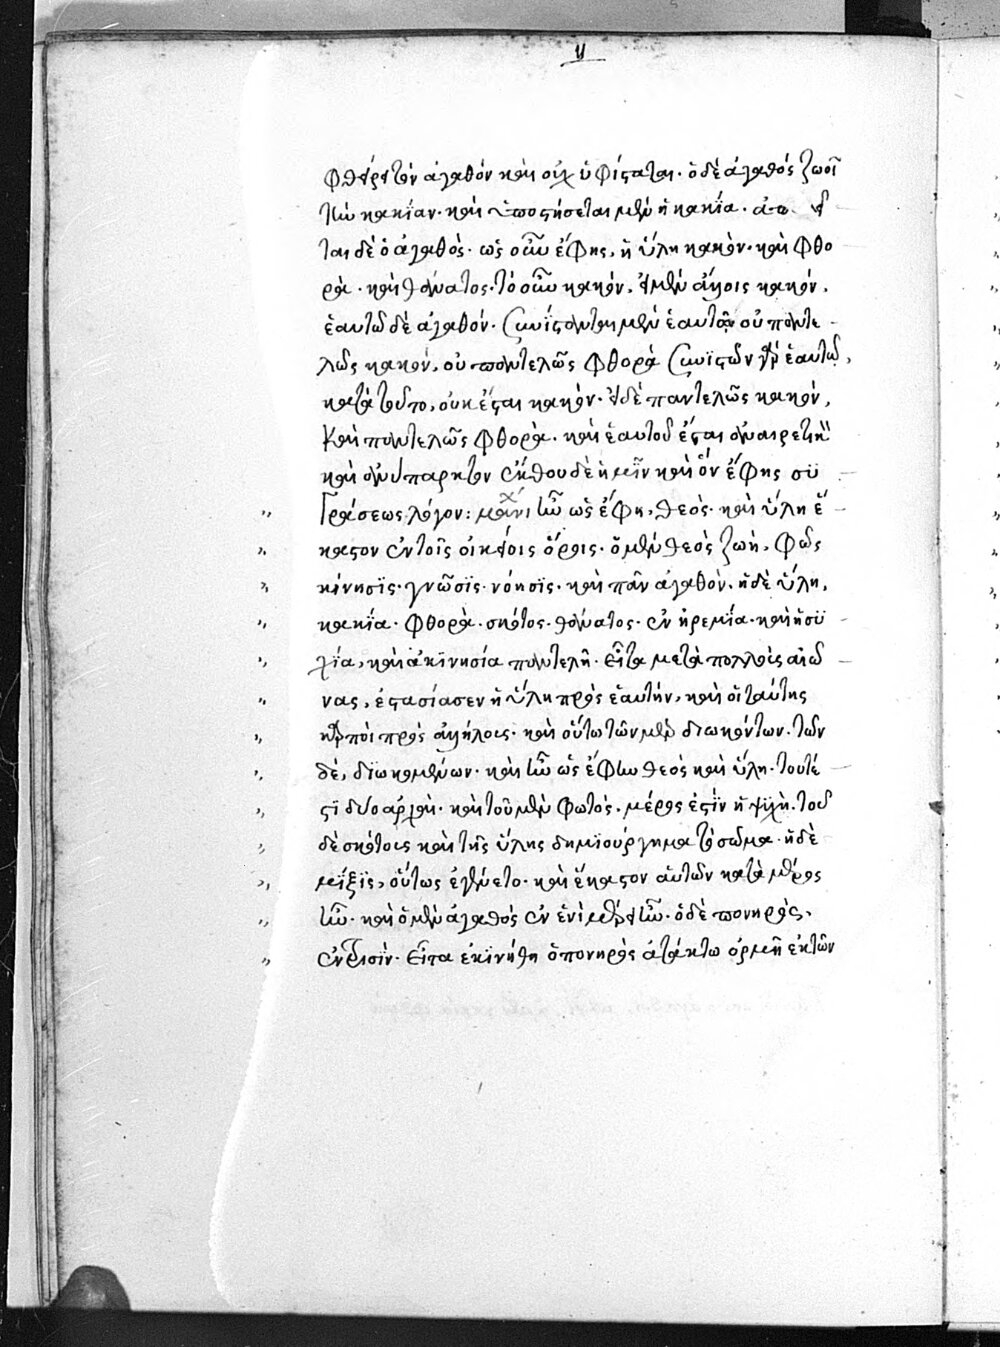 φθείρει τὸν ἀγαθὸν καὶ οὐχ ὑφίσταται· ὁ δὲ ἀγαθός ζωοῖ
τὴν κακίαν· καὶ ὑποστήσεται μὲν ἡ κακία·
ται δὲ ὁ ἀγαθὸς· ὡς οὖν ἔφης, ἡ ὕλη κακὸν· καὶ φθο
ρὰ· καὶ θάνατος· τὸ οὖν κακόν, εἰ μὲν ἄλλοις κακόν,
ἑαυτῶ δὲ ἀγαθόν· συνίσταται μὲν ἑαυτὸν οὐ παντε
λῶς κακόν, οὐ παντελῶς φθορὰ συνιστῶν γὰρ ἑαυτῶ,
κατὰ τοῦτο, οὐκ ἔσται κακὸν· εἰ δὲ παντελῶς κακὸν,
καὶ παντελῶς φθορὰ· καὶ ἑαυτοῦ ἔσται ἀναιρετικὴ
καὶ ἀνύπαρκτον ἔκθου δὲ ἡμῖν καὶ ὃν ἔφης συϊ
γράσεως λόγον: μάνι ἦν ὡς ἔφη, θεὸς· καὶ ὕλη ἕ
καστον ἐν τοῖς οἰκείοις ὅροις· ὁ μὲν θεὸς ζωὴ, φῶς
κίνησϊς· γνῶσϊς· νόησϊς· καὶ πᾶν ἀγαθὸν, ἡ δὲ ὕλη,
κακία· φθορὰ· σκότος· θάνατος· ἐν ἠρεμία· καὶ ἡσϋ
χία, καὶ ἀκϊνησία παντελῆ· εἶτα μετὰ πολλοὺς αἰῶ
νας, ἐστασίασεν ἡ ὕλη πρὸς ἑαυτήν, καὶ οἱ ταύτης
καρποὶ πρὸς ἀλλήλους· καὶ οὕτω τῶν μὲν διωκόντων· τῶν
δὲ, δϊωκομένων· καὶ ἦν ὡς ἔφην θεὸς καὶ ὕλη· τουτέ
στϊ δύο ἀρχαὶ· καὶ τοῦ μὲν φωτὸς, μέρος ἐστϊν ἡ ψυχὴ. τοῦ
δὲ σκότους καὶ τῆς ὕλης δημϊούργημα τὸ σῶμα· ἡ δὲ
μεῖξϊς, οὕτως ἐγένετο· καὶ ἕκαστον αὐτῶν κατὰ μέρος
ἦν· καὶ ὁ μὲν ἀγαθὸς ἐν ἑνὶ μέρει ἦν· ὁ δὲ πονηρὸς,
ἐν τρισὶν· εἶτα ἐκϊνήθη ὁ πονηρὸς ἀτάκτω ὁρμῆ ἐκ τῶν